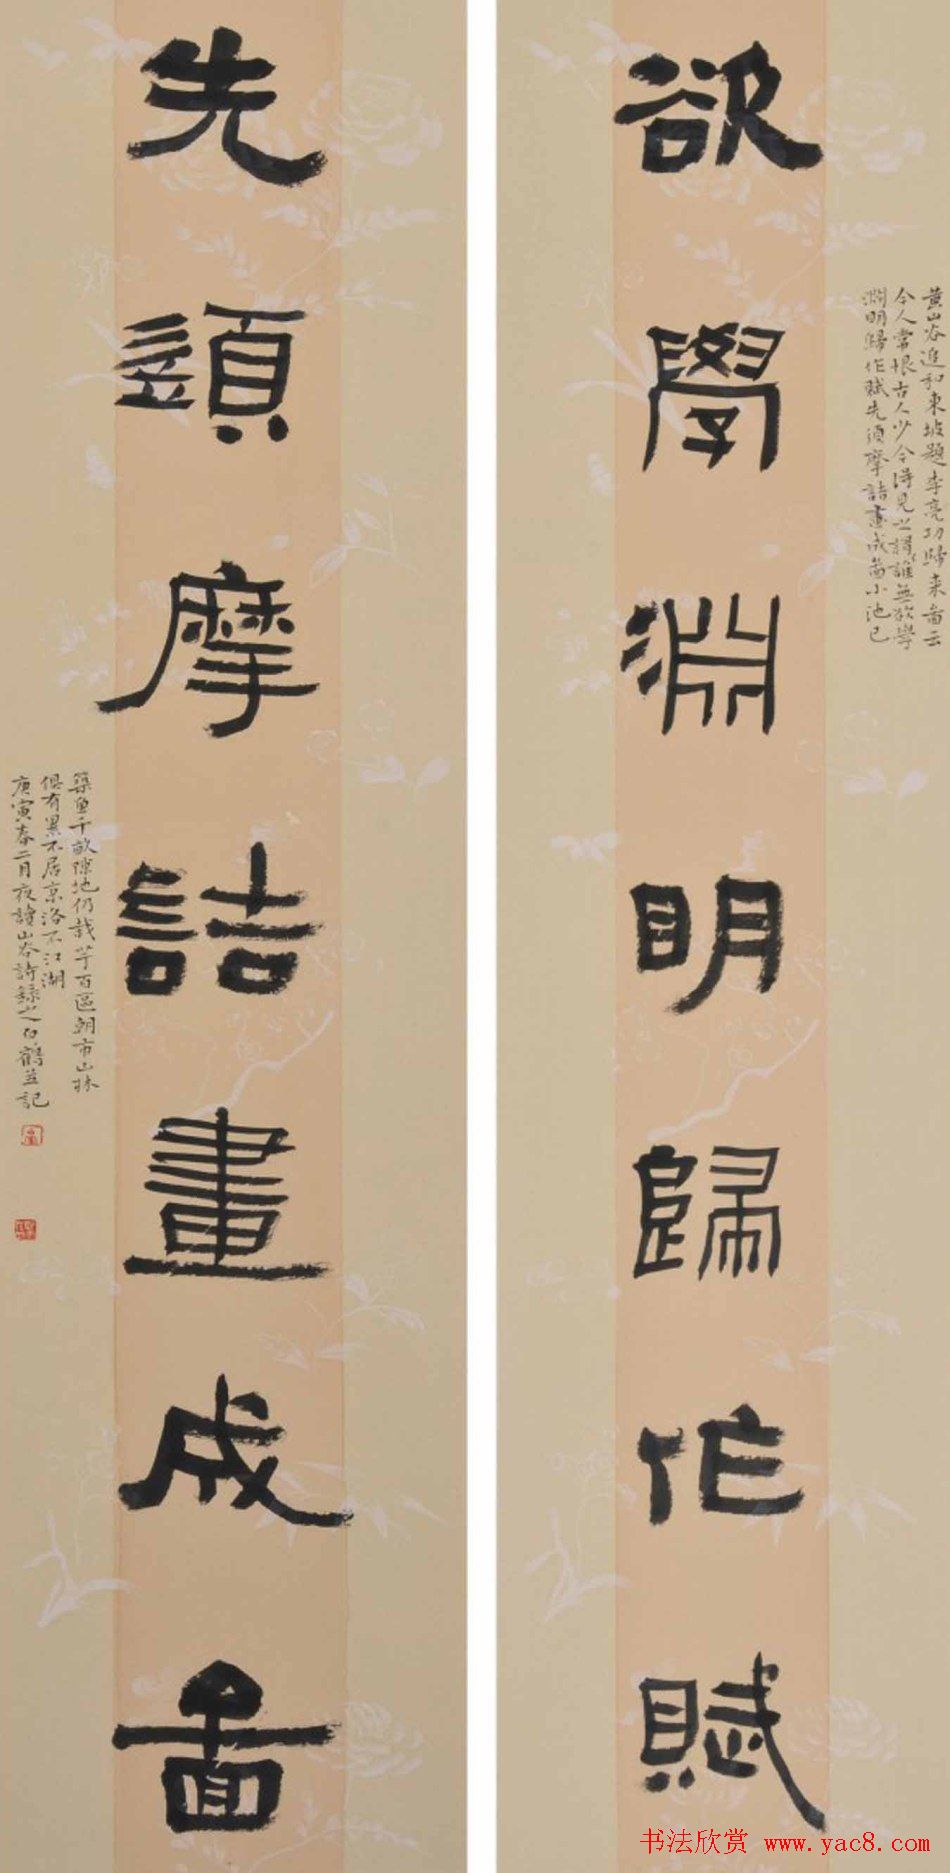 欲學淵明歸作賦
黃山谷追和東坡題李亮功歸來啚云
今人常恨古人少今得見之謂誰無欲學
淵明歸作賦先須摩詰畫成啚小池已
先須摩詰畫成啚
築魚千畝隙地仍栽芋百區朝市山林
俱有累不居京洛不江湖
庚寅春二月夜讀山谷詩錄之白鶴並記
书法欣赏 www.yac8.com